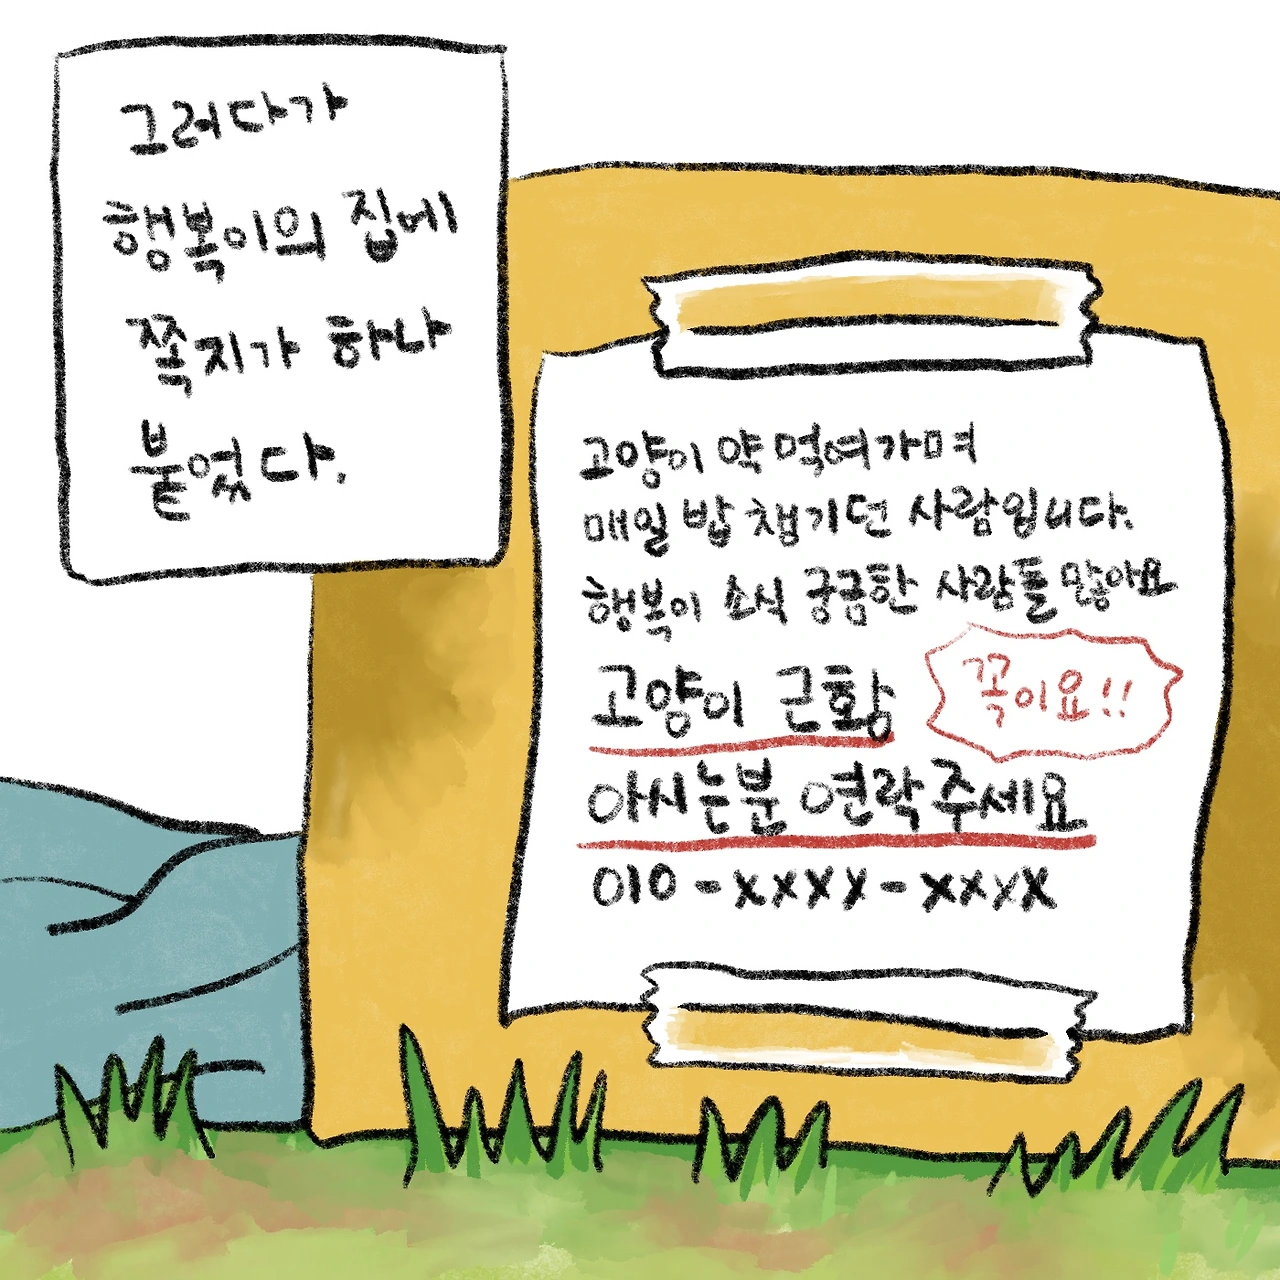 그러다가
행복이의 집에
쪽지가 하나
붙었다.
고양이 약 먹여가며
매일 밥 챙기던 사람입니다.
행복이 소식 궁금한 사람들 많아요
고양이 근황
꼭이요!!
아시는분 연락주세요
010-xxxx-xxxx